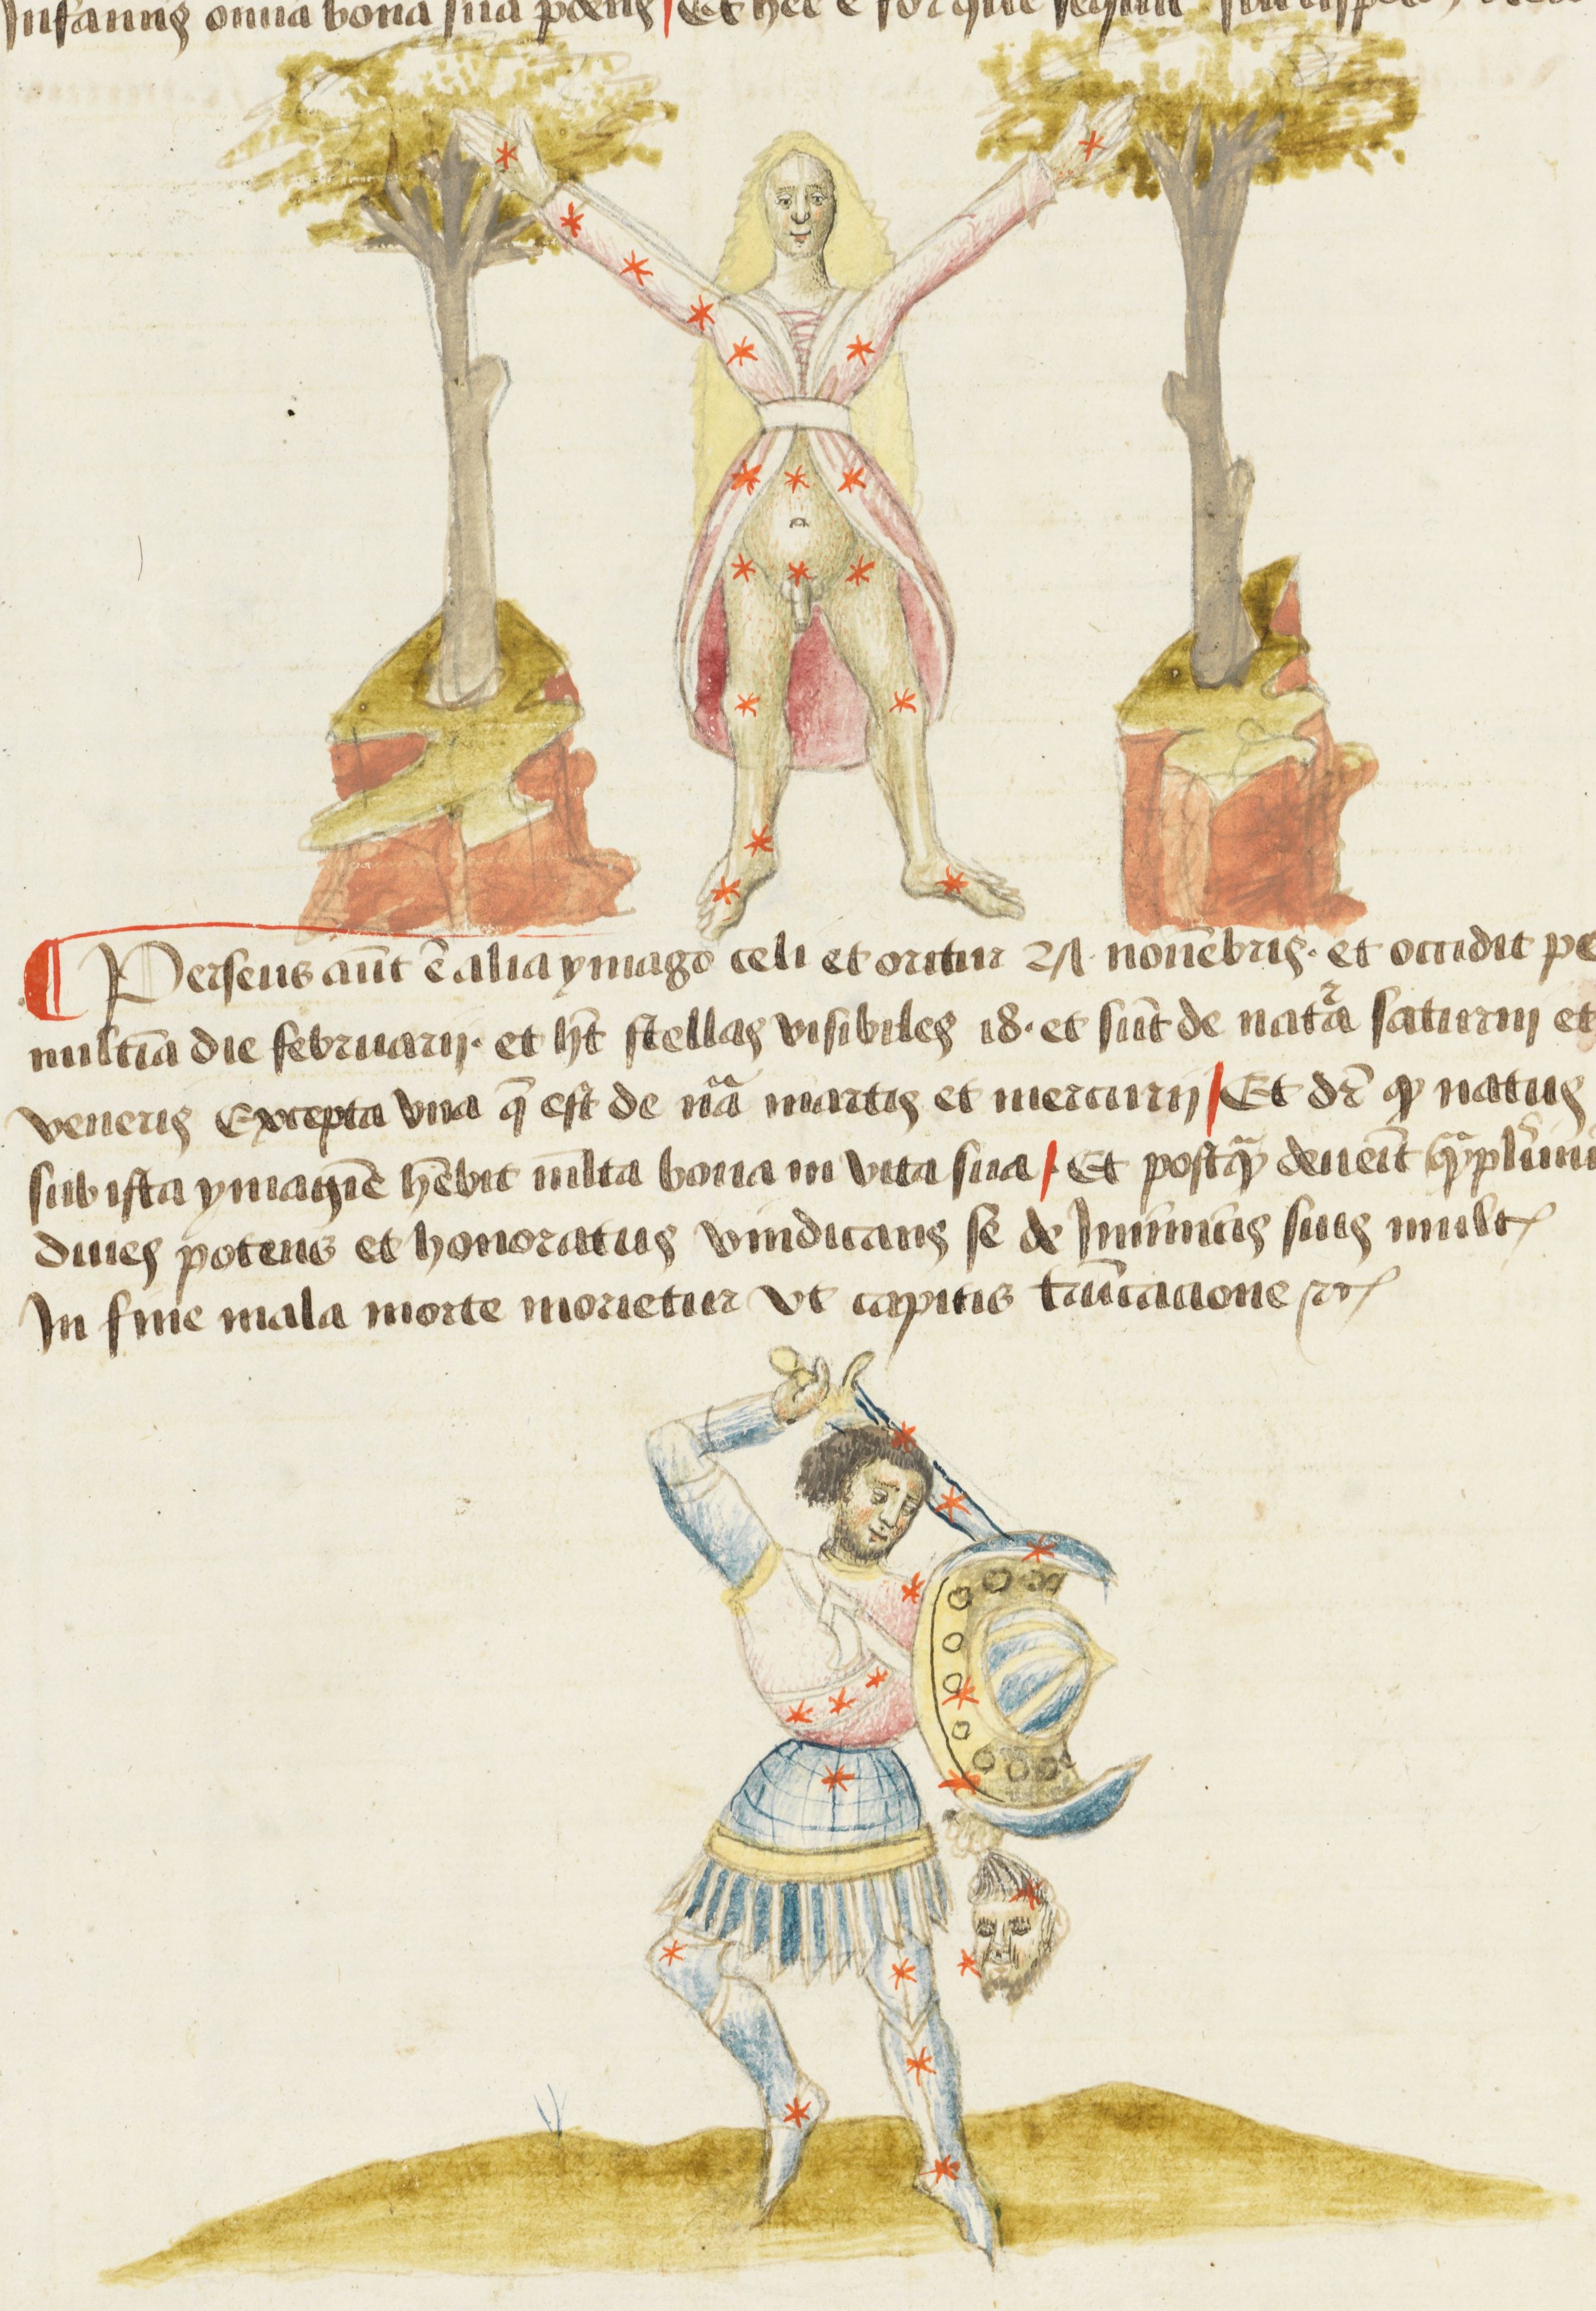 Insanus omnia bona sua pdens / Et hec ē
Perseus aūt ē alia ymago celi et oritur 21 · nouēbris · et occidit pe
nultīa die februarij · et hȳt stellas visibiles 18 · et sūt de natᷓa saturnij et
veneris Excepta vna q̄ est de nāa martis et mercurij / Et dr̄ ꝙ natus
sub ista ymagīe hēbit m̄lta bona in vita sua / Et postqᷓꝫ deueīt
diues potens et honoratus vindicans se de Inimicis suis mult
In fine mala morte morietur Vt capitis tᷓūcacione ꝛc̄